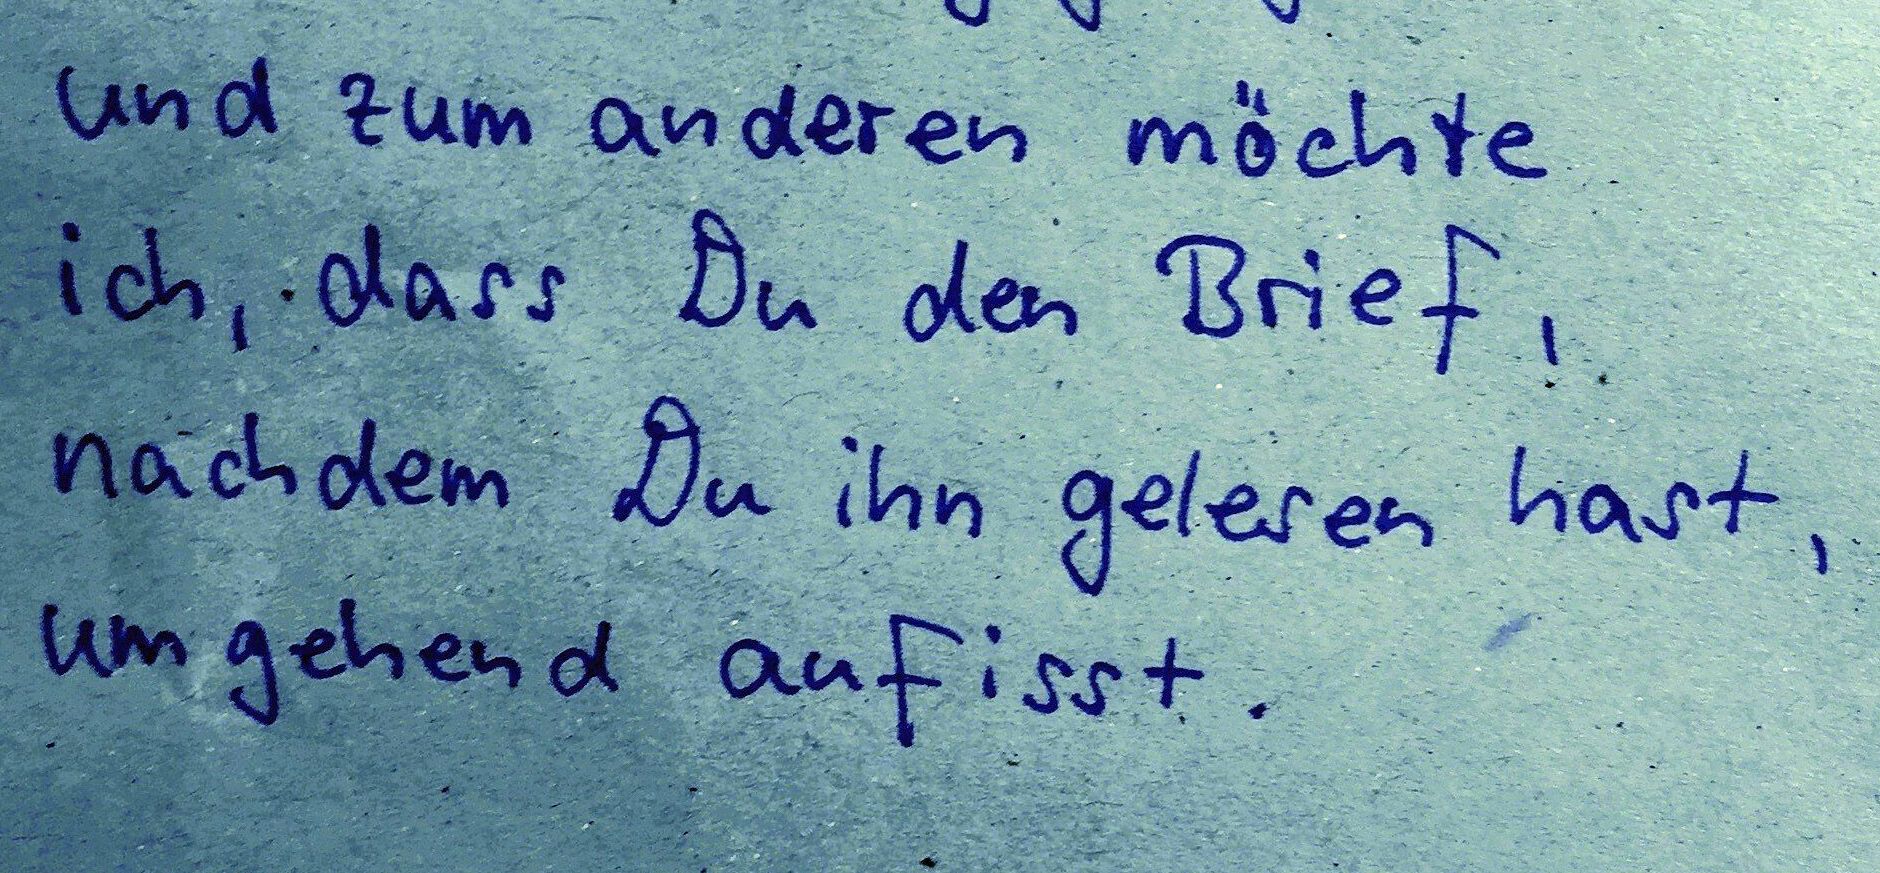 und zum anderen möchte
ich, dass Du den Brief,
nachdem Du ihn gelesen hast,
umgehend aufisst.